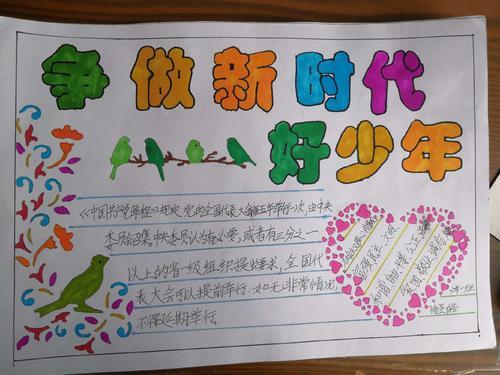 争做新时代
好少年
《中国共产党章程》规定,党的全国代表大会每五年举行一次,由中央
委员会召集。中央委员会认为有必要,或者有三分之一
以上的省一级组织提出要求,全国代
表大会可以提前举行;如无非常情况,
不得延期举行。
富强 民主 文明
和谐 自由 平等 公正
爱国 敬业 诚信